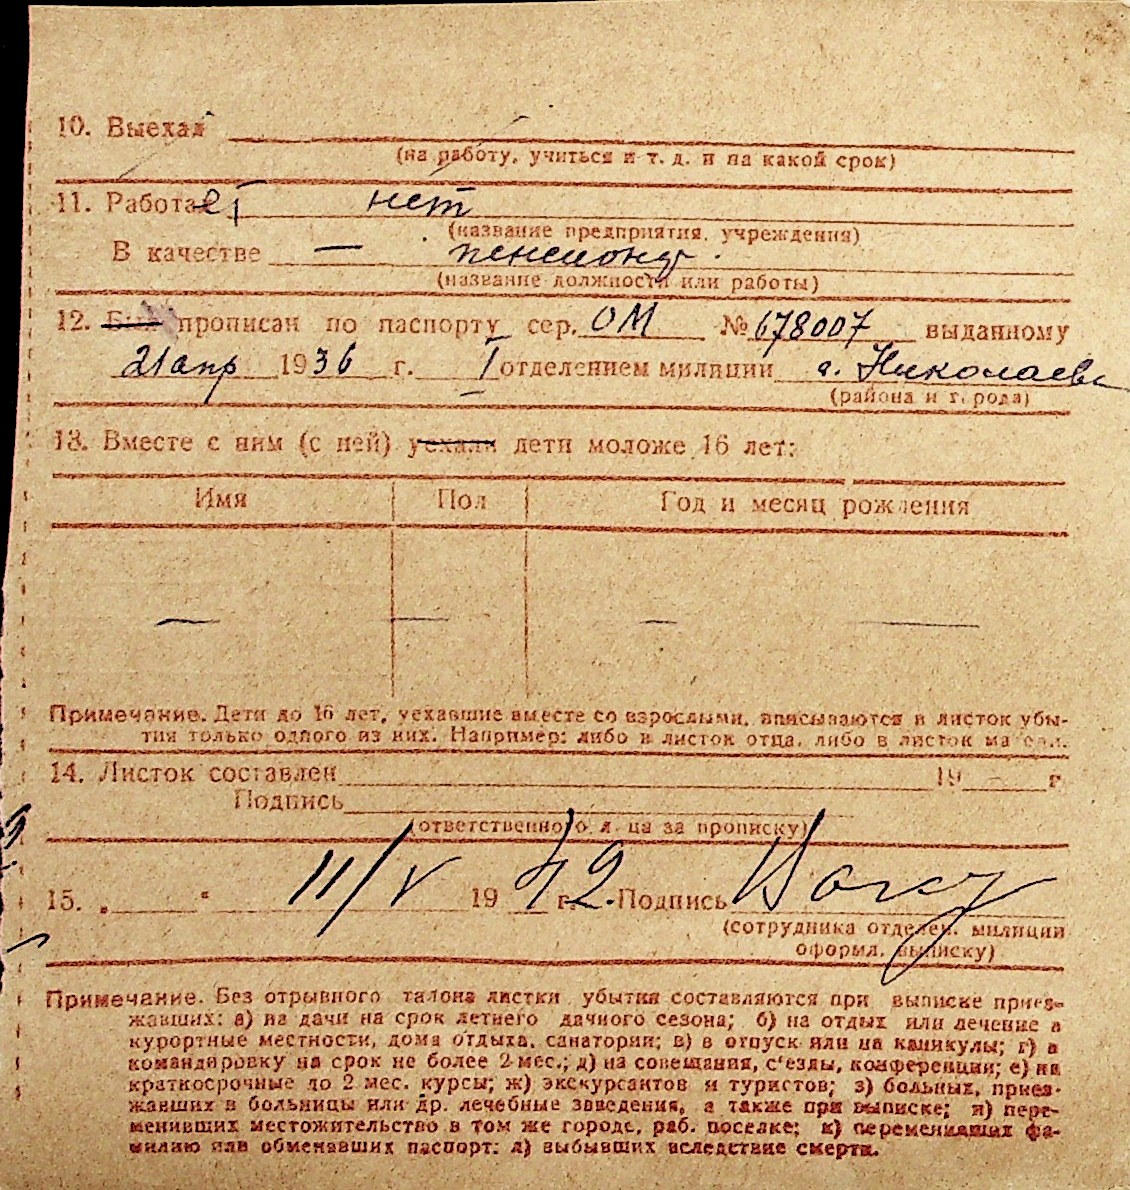 10. Выехал
(на работу, учиться и т. д. и на какой срок)
11. Работает нет
(название предприятия, учреждения)
В качестве — пенсионер.
(название должности или работы)
12. Был прописан по паспорту сер. ОМ № 678007 выданному
21 апр 1936 г. I отделением милиции г. Николаева
(района и города)
13. Вместе с ним (с ней) уехали дети моложе 16 лет:
Имя Пол Год и месяц рождения
— — — —
Примечание. Дети до 16 лет, уехавшие вместе со взрослыми, вписываются в листок убы-
тия только одного из них. Например: либо в листок отца, либо в листок матери.
14. Листок составлен 19 — г
Подпись
(ответственного лица за прописку)
15. „ “ 11/V 1942 г. Подпись
(сотрудника отделен. милиции
оформл. выписку)
Примечание. Без отрывного талона листки убытия составляются при выписке приез-
жавших: а) на дачи на срок летнего дачного сезона; б) на отдых или лечение в
курортные местности, дома отдыха, санатории; в) в отпуск или на каникулы; г) в
командировку на срок не более 2 мес.; д) на совещания, с'езды, конференции; е) на
краткосрочные до 2 мес. курсы; ж) экскурсантов и туристов; з) больных, приез-
жавших в больницы или др. лечебные заведения, а также при выписке; и) пере-
менивших местожительство в том же городе, раб. поселке; к) переменивших фа-
милию или обменявших паспорт; л) выбывших вследствие смерти.